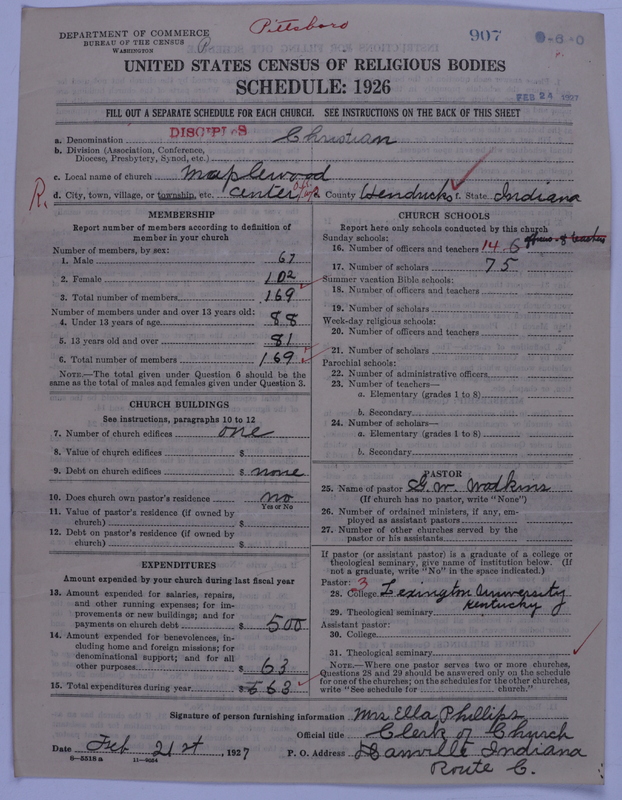 Pittsboro
907
FEB 24 1927
DEPARTMENT OF COMMERCE
BUREAU OF THE CENSUS
WASHINGTON
UNITED STATES CENSUS OF RELIGIOUS BODIES
SCHEDULE: 1926
FILL OUT A SEPARATE SCHEDULE FOR EACH CHURCH. SEE INSTRUCTIONS ON THE BACK OF THIS SHEET
DISCIPLES
a. Denomination Christian
b. Division (Association, Conference,
Diocese, Presbytery, Synod, etc.)
c. Local name of church Maplewood
R. d. City, town, village, or township, etc. Center e. County Hendricks f. State Indiana
MEMBERSHIP
Report number of members according to definition of
member in your church
Number of members, by sex:
1. Male 67
2. Female 102
3. Total number of members 169
Number of members under and over 13 years old:
4. Under 13 years of age 88
5. 13 years old and over 81
6. Total number of members 169
NOTE.—The total given under Question 6 should be the
same as the total of males and females given under Question 3.
CHURCH BUILDINGS
See instructions, paragraphs 10 to 12
7. Number of church edifices one
8. Value of church edifices $
9. Debt on church edifices $ none
10. Does church own pastor's residence no
Yes or No
11. Value of pastor's residence (if owned by
church) $
12. Debt on pastor's residence (if owned by
church) $
EXPENDITURES
Amount expended by your church during last fiscal year
13. Amount expended for salaries, repairs,
and other running expenses; for im-
provements or new buildings; and for
payments on church debt $ 500
14. Amount expended for benevolences, in-
cluding home and foreign missions; for
denominational support; and for all
other purposes $ 63
15. Total expenditures during year $ 563
CHURCH SCHOOLS
Report here only schools conducted by this church
Sunday schools:
16. Number of officers and teachers 14 6
17. Number of scholars 75
Summer vacation Bible schools:
18. Number of officers and teachers
19. Number of scholars
Week-day religious schools:
20. Number of officers and teachers
21. Number of scholars
Parochial schools:
22. Number of administrative officers
23. Number of teachers—
a. Elementary (grades 1 to 8)
b. Secondary
24. Number of scholars—
a. Elementary (grades 1 to 8)
b. Secondary
PASTOR
25. Name of pastor G. W. Watkins
(If church has no pastor, write "None")
26. Number of ordained ministers, if any, em-
ployed as assistant pastors
27. Number of other churches served by the
pastor or his assistants
If pastor (or assistant pastor) is a graduate of a college or
theological seminary, give name of institution below. (If
not a graduate, write "No" in the space indicated.)
Pastor: 3
28. College Lexington University
Kentucky
29. Theological seminary
Assistant pastor:
30. College
31. Theological seminary
NOTE.—Where one pastor serves two or more churches,
Questions 28 and 29 should be answered only on the schedule
for one of the churches; on the schedules for the other churches,
write "See schedule for church."
Signature of person furnishing information Mrs Ella Phillips
Official title Clerk of Church
Date Feb 21st, 1927 P. O. Address Danville Indiana
Route C.
8—5518 a 11—9054